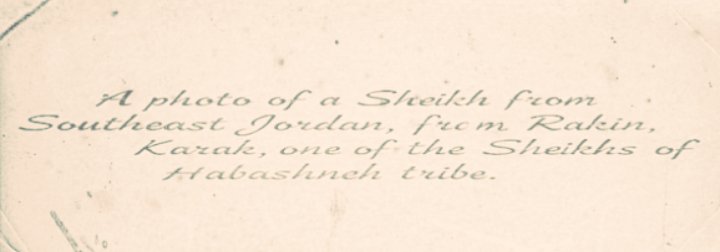 A photo of a Sheikh from
Southeast Jordan, from Rakin,
Karak, one of the Sheikhs of
Habashneh tribe.